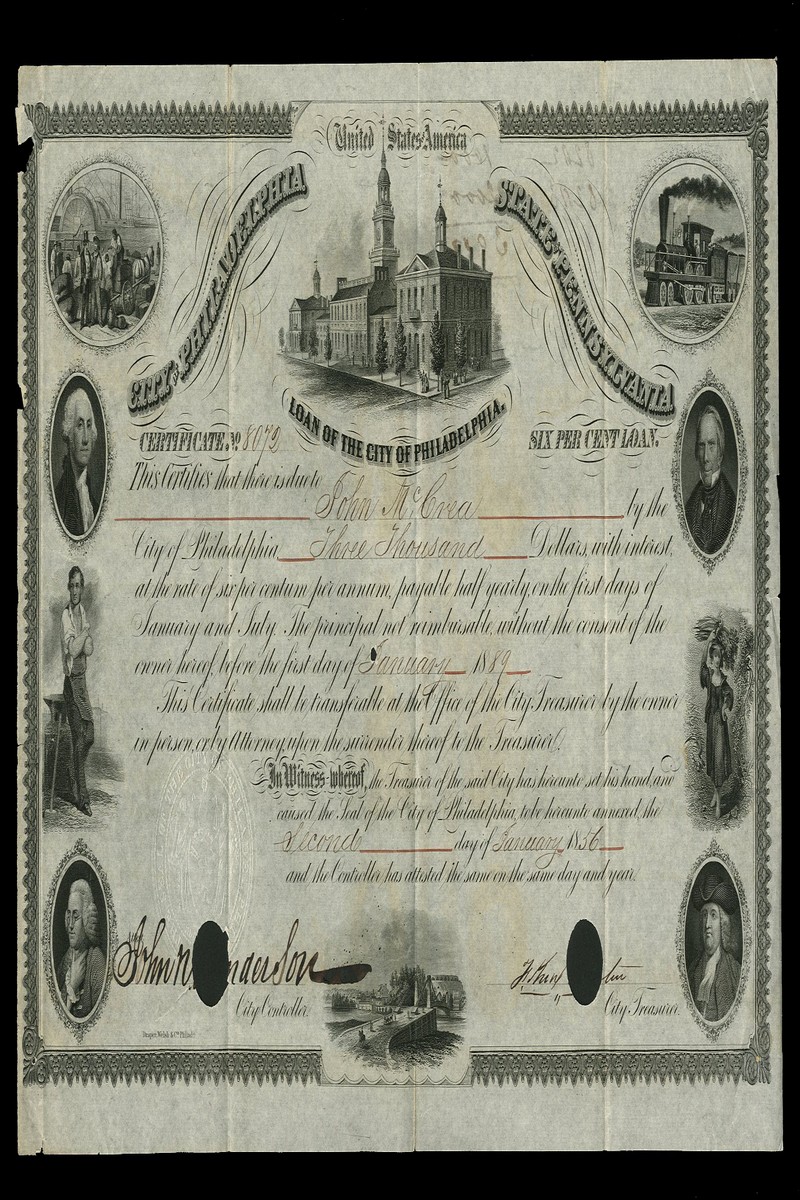 United States America
CITY OF PHILADELPHIA
STATE OF PENNSYLVANIA
LOAN OF THE CITY OF PHILADELPHIA.
CERTIFICATE. No 8072
SIX PER CENT LOAN.
This Certifies that there is due to
John McCrea by the
City of Philadelphia Three Thousand Dollars, with interest,
at the rate of six per centum per annum, payable half yearly, on the first days of
January and July. The principal not reimbursable, without the consent of the
owner hereof, before the first day of January 1889
This Certificate shall be transferable at the Office of the City Treasurer by the owner
in person, or by Attorney, upon the surrender thereof to the Treasurer.
In Witness whereof, the Treasurer of the said City has hereunto set his hand, and
caused the Seal of the City of Philadelphia, to be hereunto annexed, the
Second day of January 1856
and the Controller has attested the same on the same day and year.
John N. nderson
City Controller.
City Treasurer.
Draper, Welsh & Co. Philada.